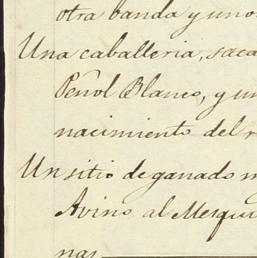 otra banda y uno
Una caballeria, saca
Peñol Blanco, y un
nacimiento del r
Un sitio de ganado m
Avino al Mesqui
nas